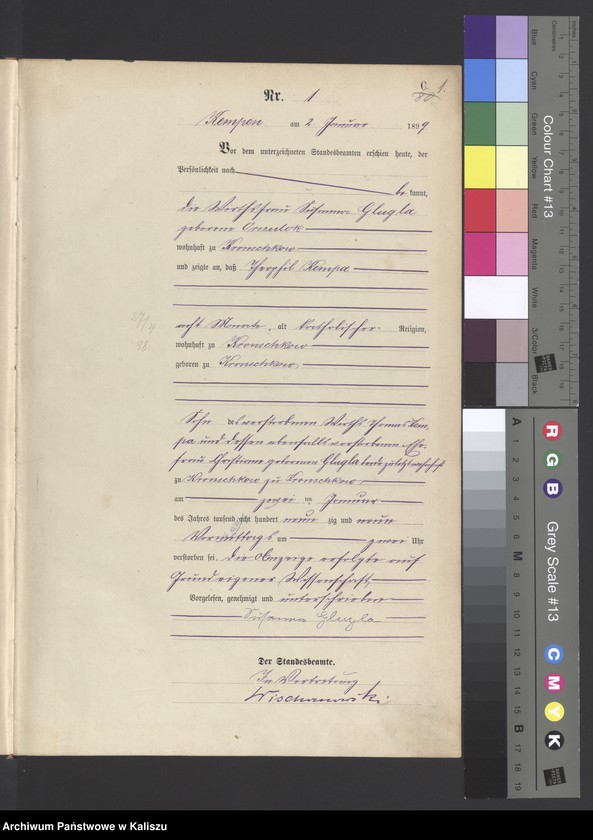 C 1.
Nr. 1
Kempen am 2. Januar 1899
Vor dem unterzeichneten Standesbeamten erschien heute, der
Persönlichkeit nach
be kannt,
die Wirthsfrau Susanna Glugla
geborene
wohnhaft zu Kromschkow
und zeigte an, daß Theophil Kempa
acht Monate alt katholischer Religion,
wohnhaft zu Kromschkow
geboren zu Kromschkow
Sohn des verstorbenen Wirths Thomas Kem-
pa und dessen ebenfalls verstorbenen Ehe-
frau geborenen Glugla beide zuletzt wohnhaft
zu Kromschkow zu Kromschkow
am zwei ten Januar
des Jahres tausend acht hundert neun zig und neun
Vormittags um zwei Uhr
verstorben sei. Die Anzeige erfolgte auf
Grund eigener Wissenschaft
Vorgelesen, genehmigt und unterschrieben
Susanna Glugla
Der Standesbeamte.
In Vertretung
Wischanowski
Colour Chart #13
Blue
Cyan
Green
Yellow
Red
Magenta
White
3/Color
Black
Inches
Centimetres
Grey Scale #13
R
G
B
C
M
Y
K
A 1 2 3 4 5 6 M 8 9 10 11 12 13 14 15 B 17 18 19
Archiwum Państwowe w Kaliszu